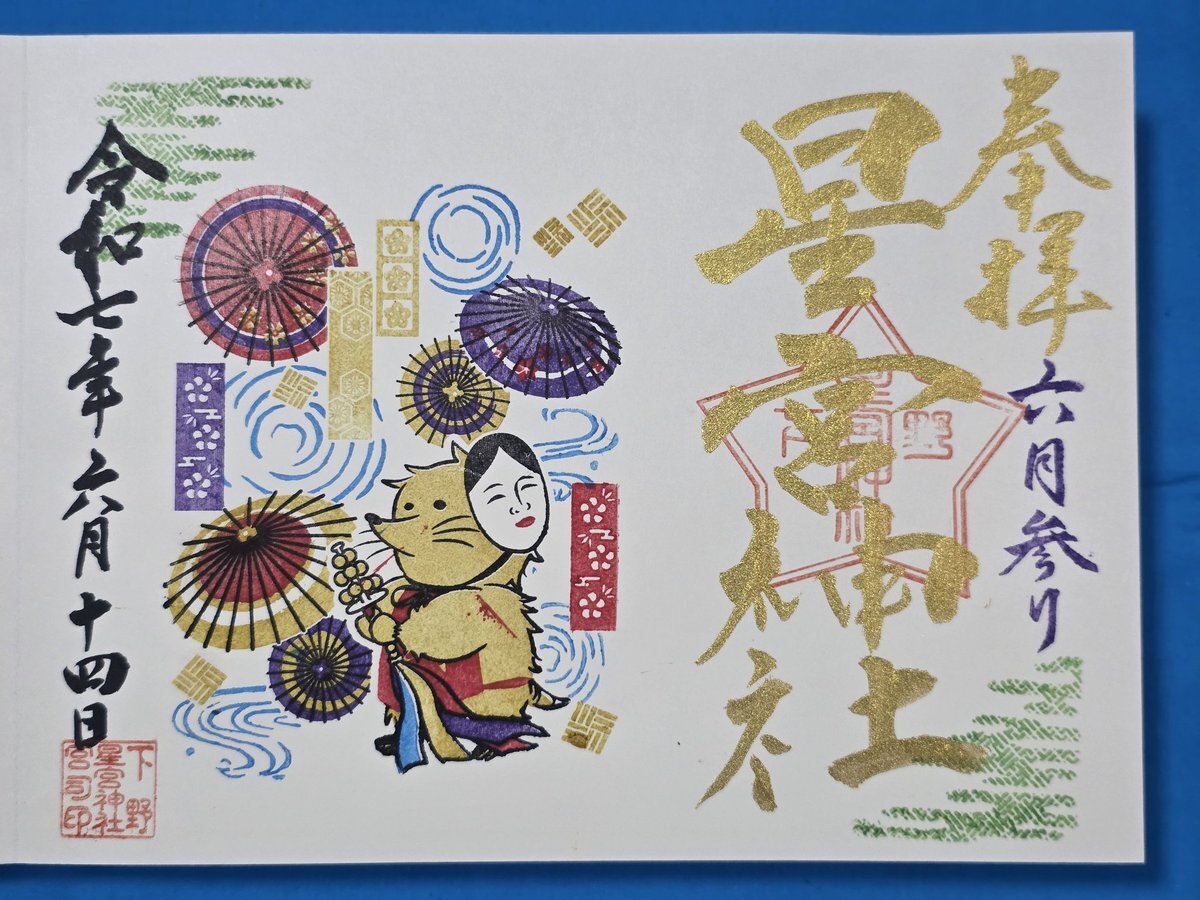 奉拝
六月参り
星宮神社
令和七年六月十四日
下野
星宮神社
宮司印